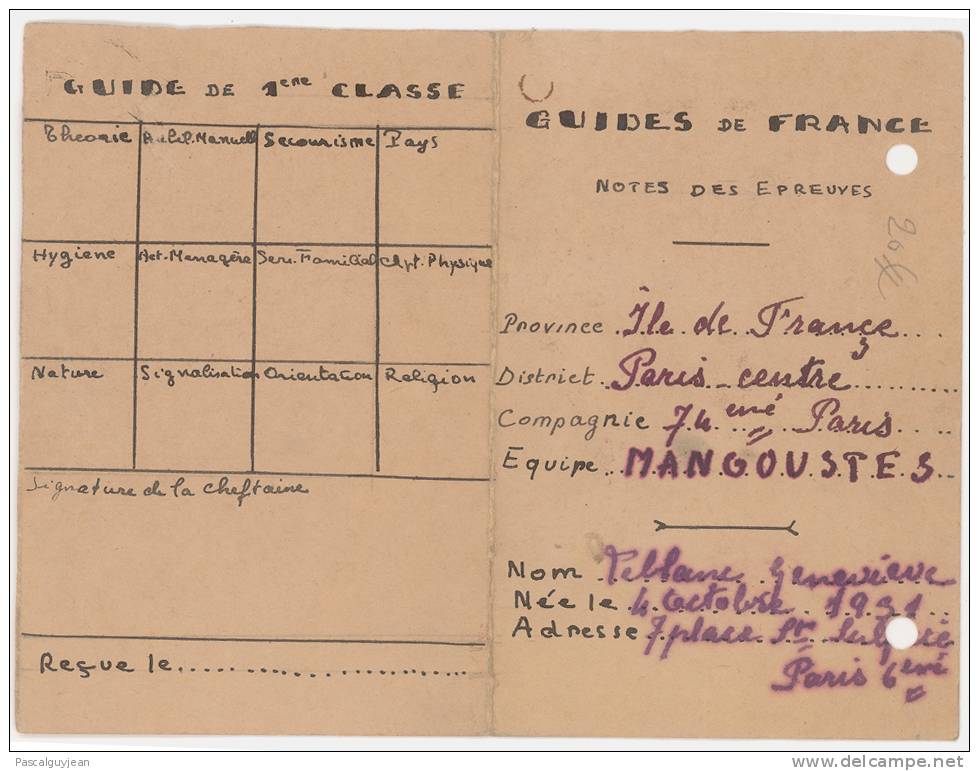 GUIDE DE 1ere CLASSE
Theorie Habil. Manuell Secourisme Pays
Hygiene Act. Managère Serv. Familial Chpt. Physique
Nature Signalisation Orientation Religion
Signature de la cheftaine
Reçue le
GUIDES DE FRANCE
NOTES DES EPREUVES
Province Île de France
District Paris centre
Compagnie 74 eme Paris
Equipe MANGOUSTES
Nom Leblanc Geneviève
Née le 4 Octobre 1931
Adresse 7 place St Sulpice
Paris 6 eme
Pascalguyjean
www.delcampe.net